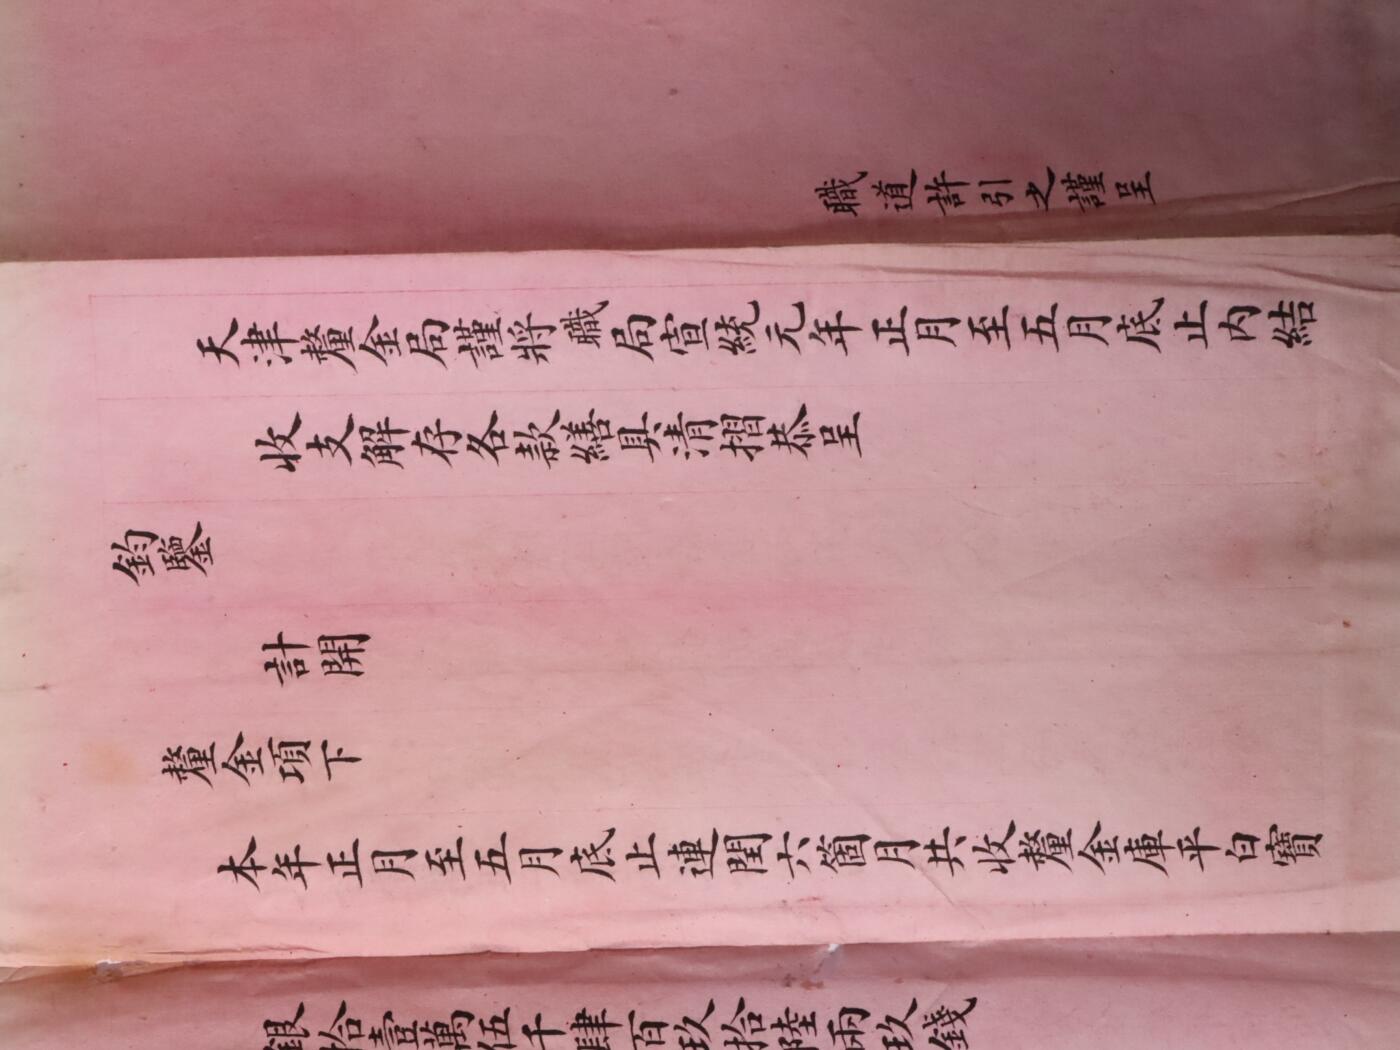 職道許引之謹呈
天津釐金局謹將職局宣統元年正月至五月底止內結
收支解存各款繕具清摺恭呈
鈞鑒
計開
釐金項下
本年正月至五月底止連閏六箇月共收釐金庫平白寶
銀拾壹萬伍千肆百玖拾陸兩玖錢